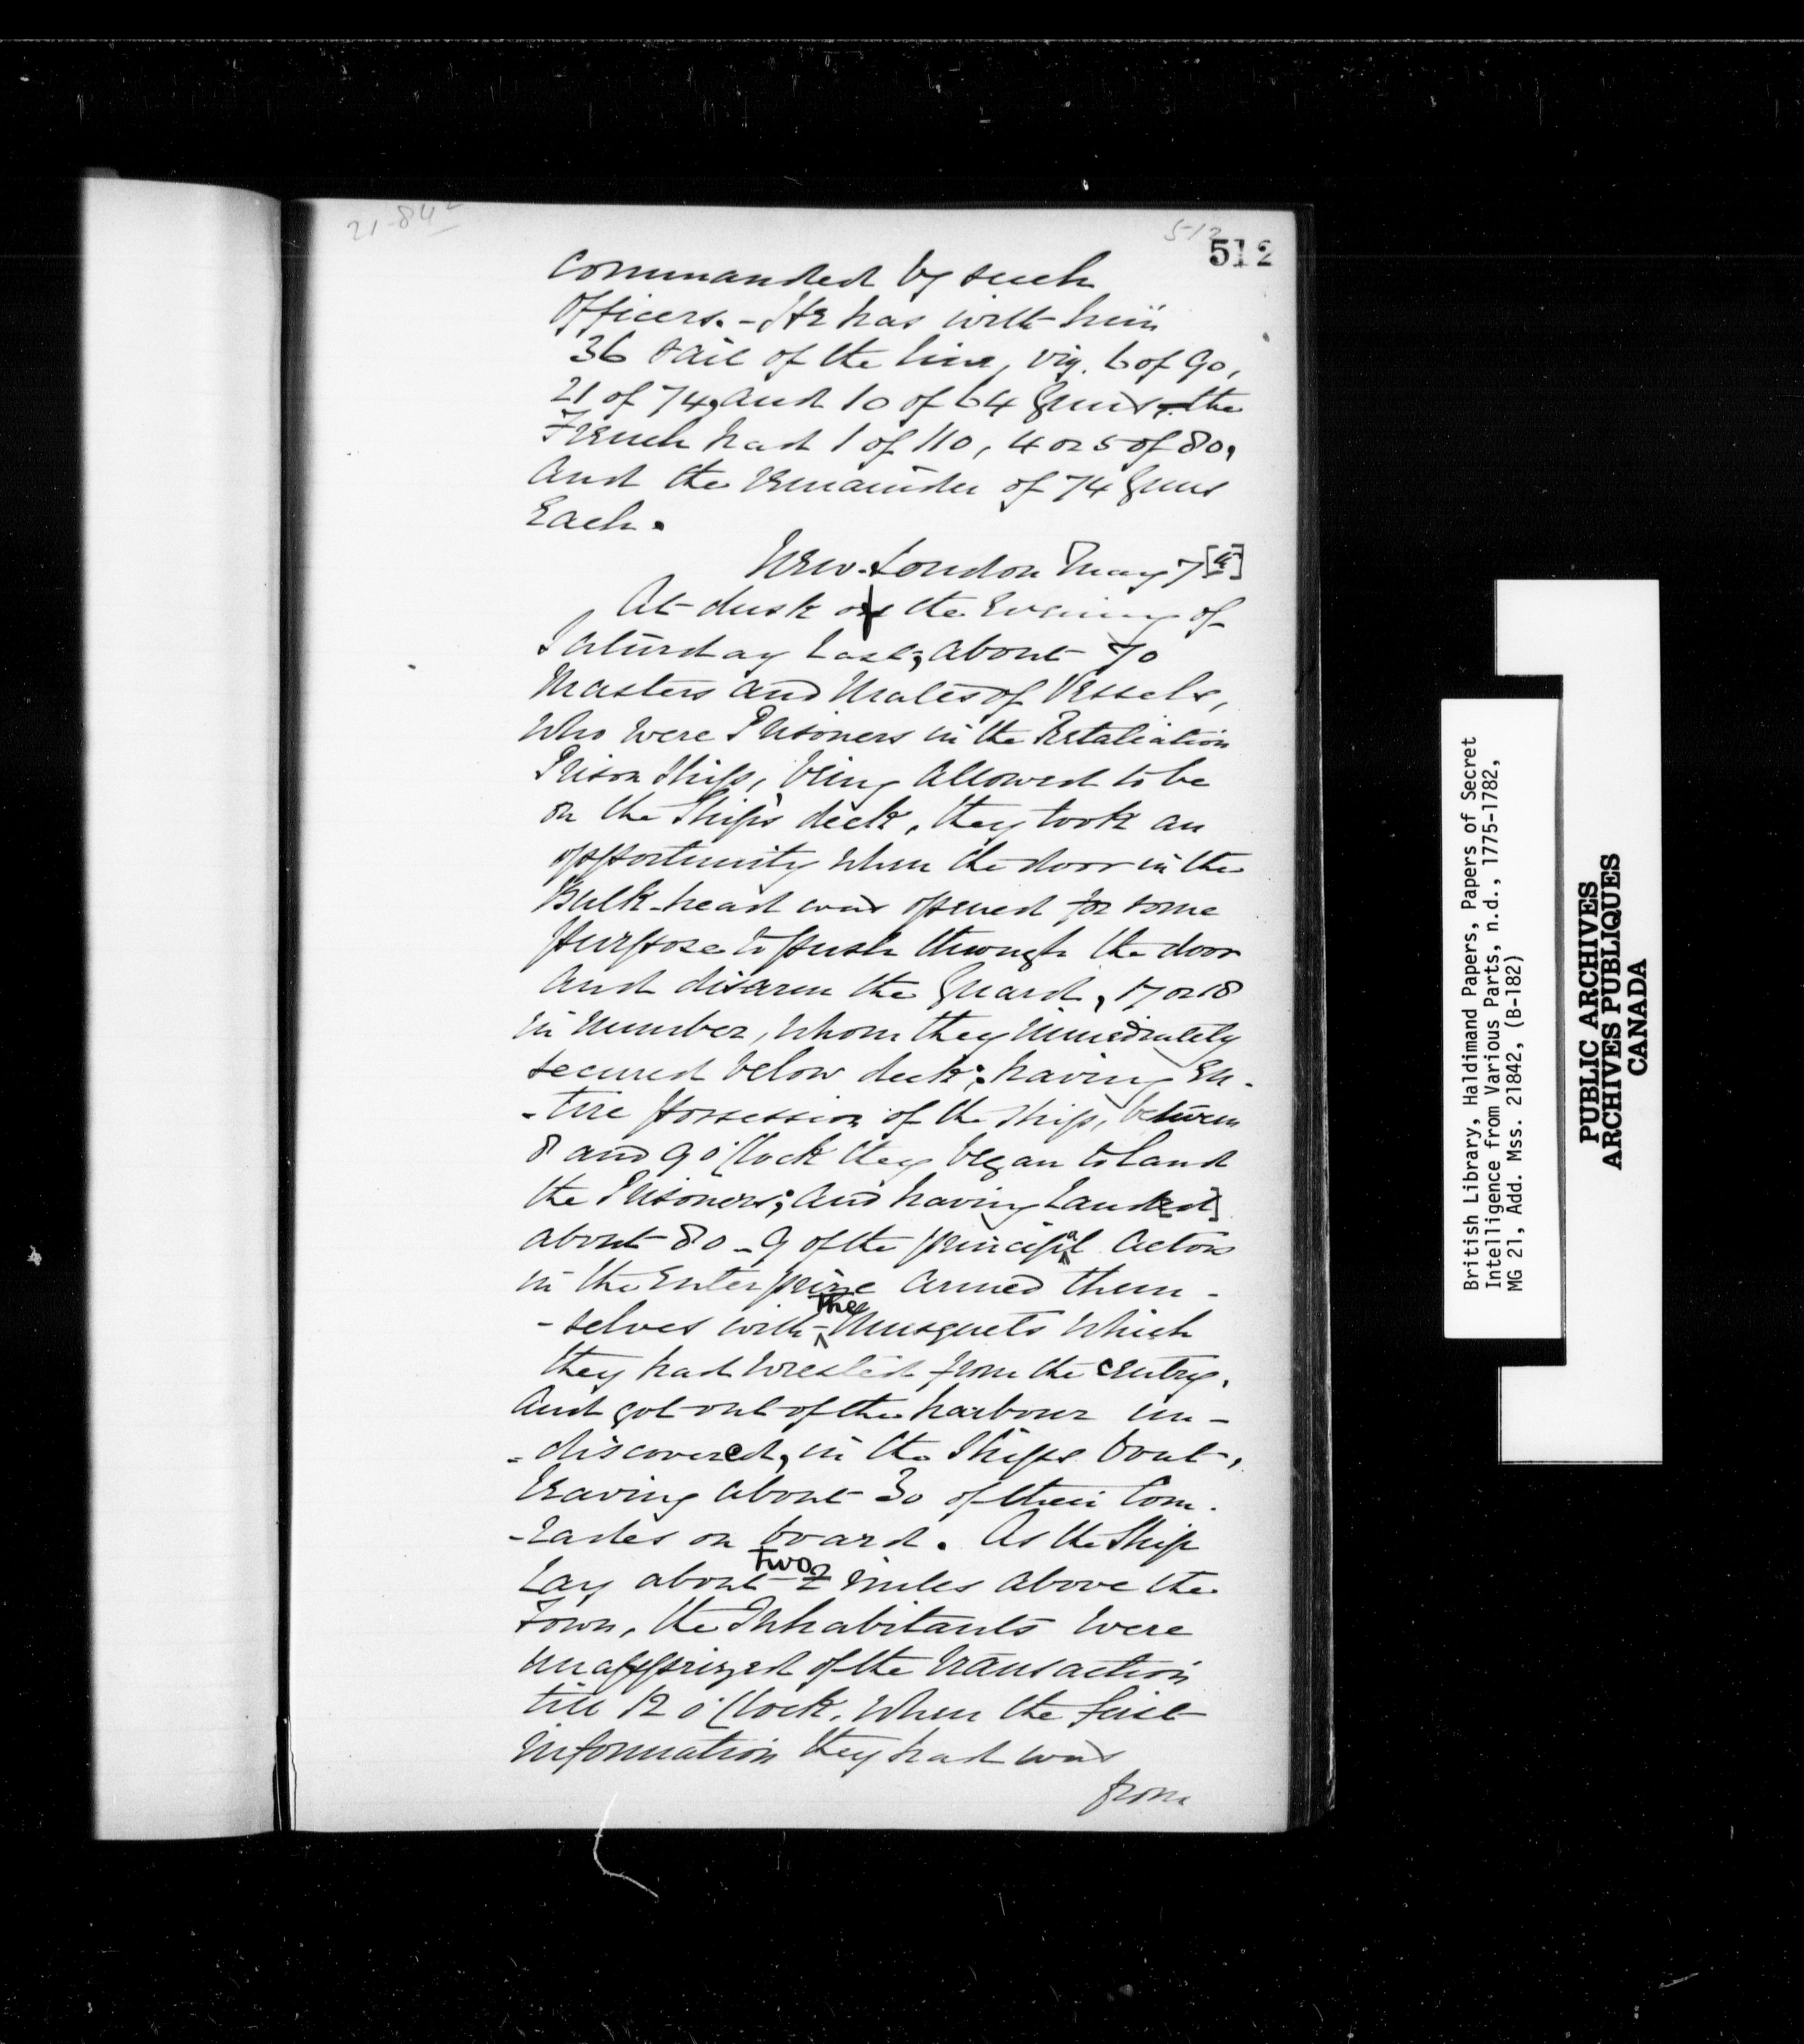 21-842
512
512
Commanded by such
Officers. - He has with him
36 sail of the line, viz. 6 of 90,
21 of 74, and 10 of 64 Guns, the
French had 1 of 110, 4 or 5 of 80,
And the remainder of 74 Guns
Each.
New-London May 7 [th]
At dusk on the Evening of
Saturday Last, about 70
Masters and Mates of Vessels,
Who were Prisoners in the Retaliation
Prison Ship, being allowed to be
on the Ship's deck, they took an
opportunity when the door in the
Bulk-head was opened for some
purpose to push through the door
And disarm the Guard, 17 or 18
in Number, whom they immediately
secured below deck; having En-
-tire possession of the ship, between
8 and 9 o'Clock they began to land
the Prisoners; and having Land[ed]
about 80 - 9 of the principal Actors
in the Enterprize armed them-
-selves with the Musquets Which
they had wrested from the Centry,
And got out of the harbour un-
-discovered, in the Ships boat,
leaving about 30 of their Com-
-rades on board. As the Ship
Lay about two 2 miles above the
Town, the Inhabitants Were
unapprized of the transaction
till 12 o'Clock, When the first
information they had was
from
British Library, Haldimand Papers, Papers of Secret
Intelligence from Various Parts, n.d., 1775-1782,
MG 21, Add. Mss. 21842, (B-182)
PUBLIC ARCHIVES
ARCHIVES PUBLIQUES
CANADA